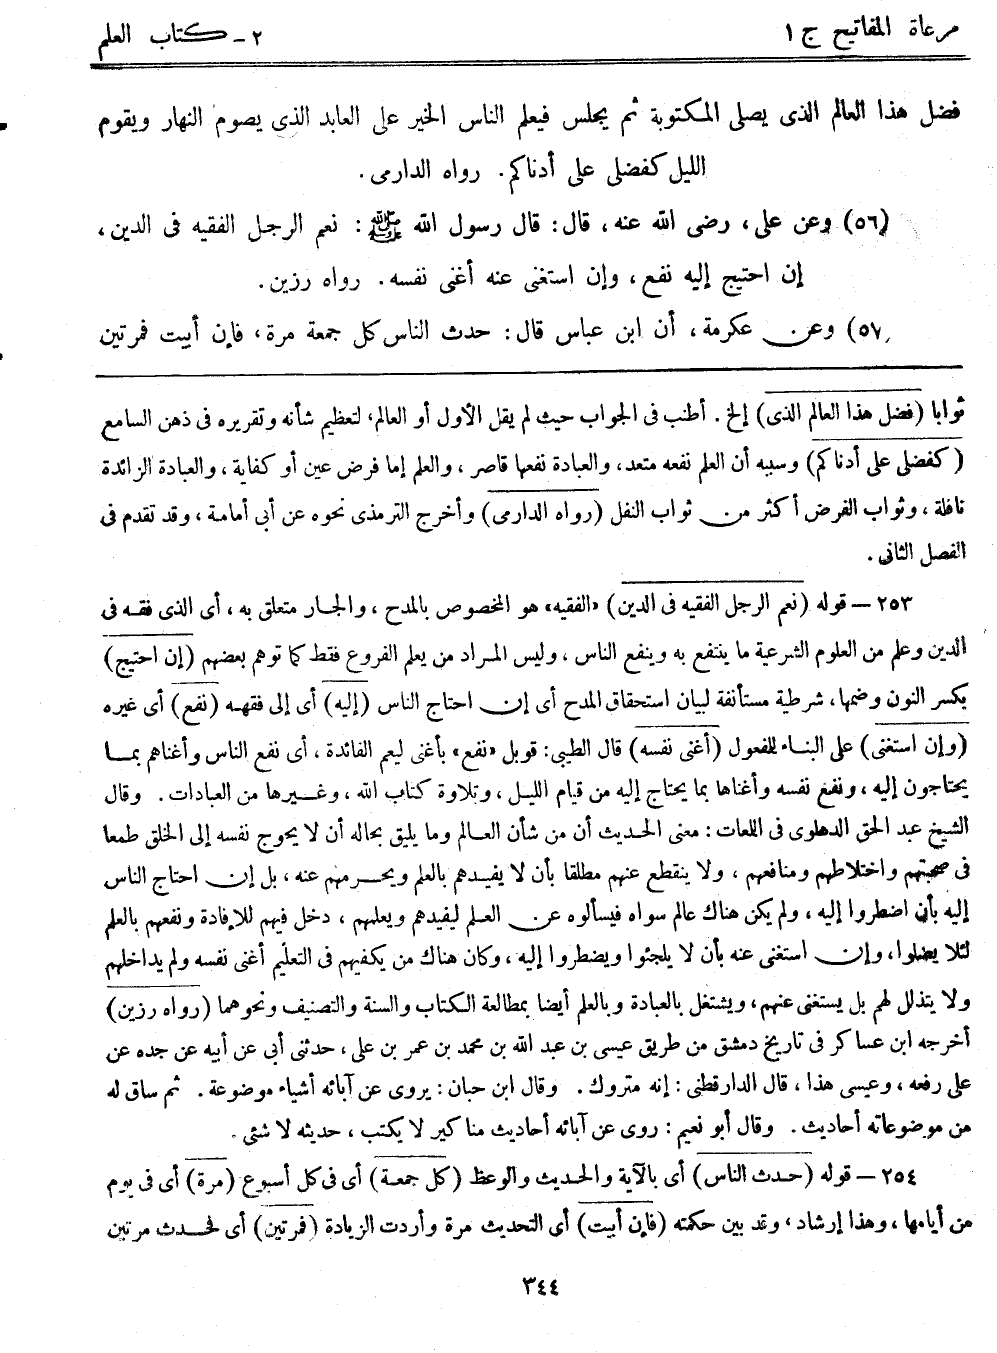 مرعاة المفاتيح ج ١
٢ - كتاب العلم
فضل هذا العالم الذى يصلى المكتوبة ثم يجلس فيعلم الناس الخير على العابد الذى يصوم النهار ويقوم
الليل كفضلى على أدناكم. رواه الدارمى.
(٥٦) وعن على، رضى الله عنه، قال: قال رسول الله ﷺ: نعم الرجل الفقيه فى الدين،
إن احتيج إليه نفع، وإن استغنى عنه أغنى نفسه. رواه رزين.
(٥٧) وعن عكرمة، أن ابن عباس قال: حدث الناس كل جمعة مرة، فإن أبيت فمرتين
ثوابا (فضل هذا العالم الذى) إلخ. أطنب فى الجواب حيث لم يقل الأول أو العالم، لتعظيم شأنه وتقريره فى ذهن السامع
(كفضلى على أدناكم) وسببه أن العلم نفعه متعد، والعبادة نفعها قاصر، والعلم إما فرض عين أو كفاية، والعبادة الزائدة
نافلة، وثواب الفرض أكثر من ثواب النفل (رواه الدارمى) وأخرج الترمذى نحوه عن أبى أمامة، وقد تقدم فى
الفصل الثانى.
٢٥٣ – قوله (نعم الرجل الفقيه فى الدين) «الفقيه» هو المخصوص بالمدح، والجار متعلق به، أى الذى فقه فى
الدين وعلم من العلوم الشرعية ما ينتفع به وينفع الناس، وليس المراد من يعلم الفروع فقط كما توهم بعضهم (إن احتيج)
بكسر النون وضمها، شرطية مستأنفة لبيان استحقاق المدح أى إن احتاج الناس (إليه) أى إلى فقهه (نفع) أى غيره
(وإن استغنى) على البناء للمفعول (أغنى نفسه) قال الطيبى: قوبل «نفع» بأغنى ليعم الفائدة، أى نفع الناس وأغناهم بما
يحتاجون إليه، ونفع نفسه وأغناها بما يحتاج إليه من قيام الليل، وتلاوة كتاب الله، وغيرها من العبادات. وقال
الشيخ عبد الحق الدهلوى فى اللمعات: معنى الحديث أن من شأن العالم وما يليق بحاله أن لا يحوج نفسه إلى الخلق طمعا
فى صحبتهم واختلاطهم ومنافعهم، ولا ينقطع عنهم مطلقا بأن لا يفيدهم بالعلم ويحرمهم عنه، بل إن احتاج الناس
إليه بأن اضطروا إليه، ولم يكن هناك عالم سواه فيسألوه عن العلم ليفيدهم ويعلمهم، دخل فيهم للإفادة ونفعهم بالعلم
لئلا يضلوا، وإن استغنى عنه بأن لا يلجئوا ويضطروا إليه، وكان هناك من يكفيهم فى التعليم أغنى نفسه ولم يداخلهم
ولا يتذلل لهم بل يستغنى عنهم، ويشتغل بالعبادة وبالعلم أيضا بمطالعة الكتاب والسنة والتصنيف ونحوهما (رواه رزين)
أخرجه ابن عساكر فى تاريخ دمشق من طريق عيسى بن عبد الله بن محمد بن عمر بن على، حدثنى أبى عن أبيه عن جده عن
على رفعه، وعيسى هذا، قال الدارقطنى: إنه متروك. وقال ابن حبان: يروى عن آبائه أشياء موضوعة. ثم ساق له
من موضوعاته أحاديث. وقال أبو نعيم: روى عن آبائه أحاديث مناكير لا يكتب، حديثه لا شئى.
٢٥٤ – قوله (حدث الناس) أى بالآية والحديث والوعظ (كل جمعة) أى فى كل أسبوع (مرة) أى فى يوم
من أيامها، وهذا إرشاد، وقد بين حكمته (فإن أبيت) أى التحديث مرة وأردت الزيادة (فمرتين) أى فحدث مرتين
٣٤٤